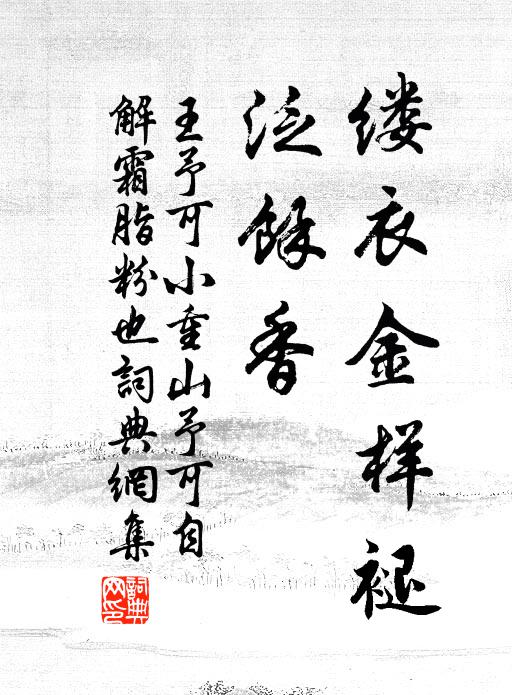 缕衣金样褪
泛餘香
王予可小重山予可自
解霜脂粉也詞典網集
詞典网印